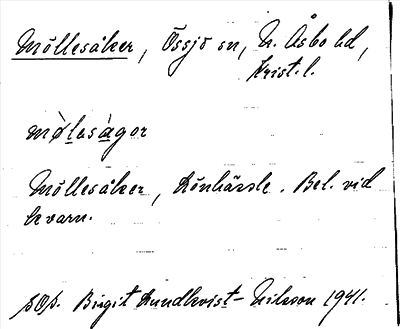 Möllesåker, Össjö sn, N. Åsbo hd,
Krist. l.
mø̀lesàgor
Möllesåker, Rönhässle. Bel. vid
kvarn.
sOp. Birgit Lundkvist-Nilsson 1941.